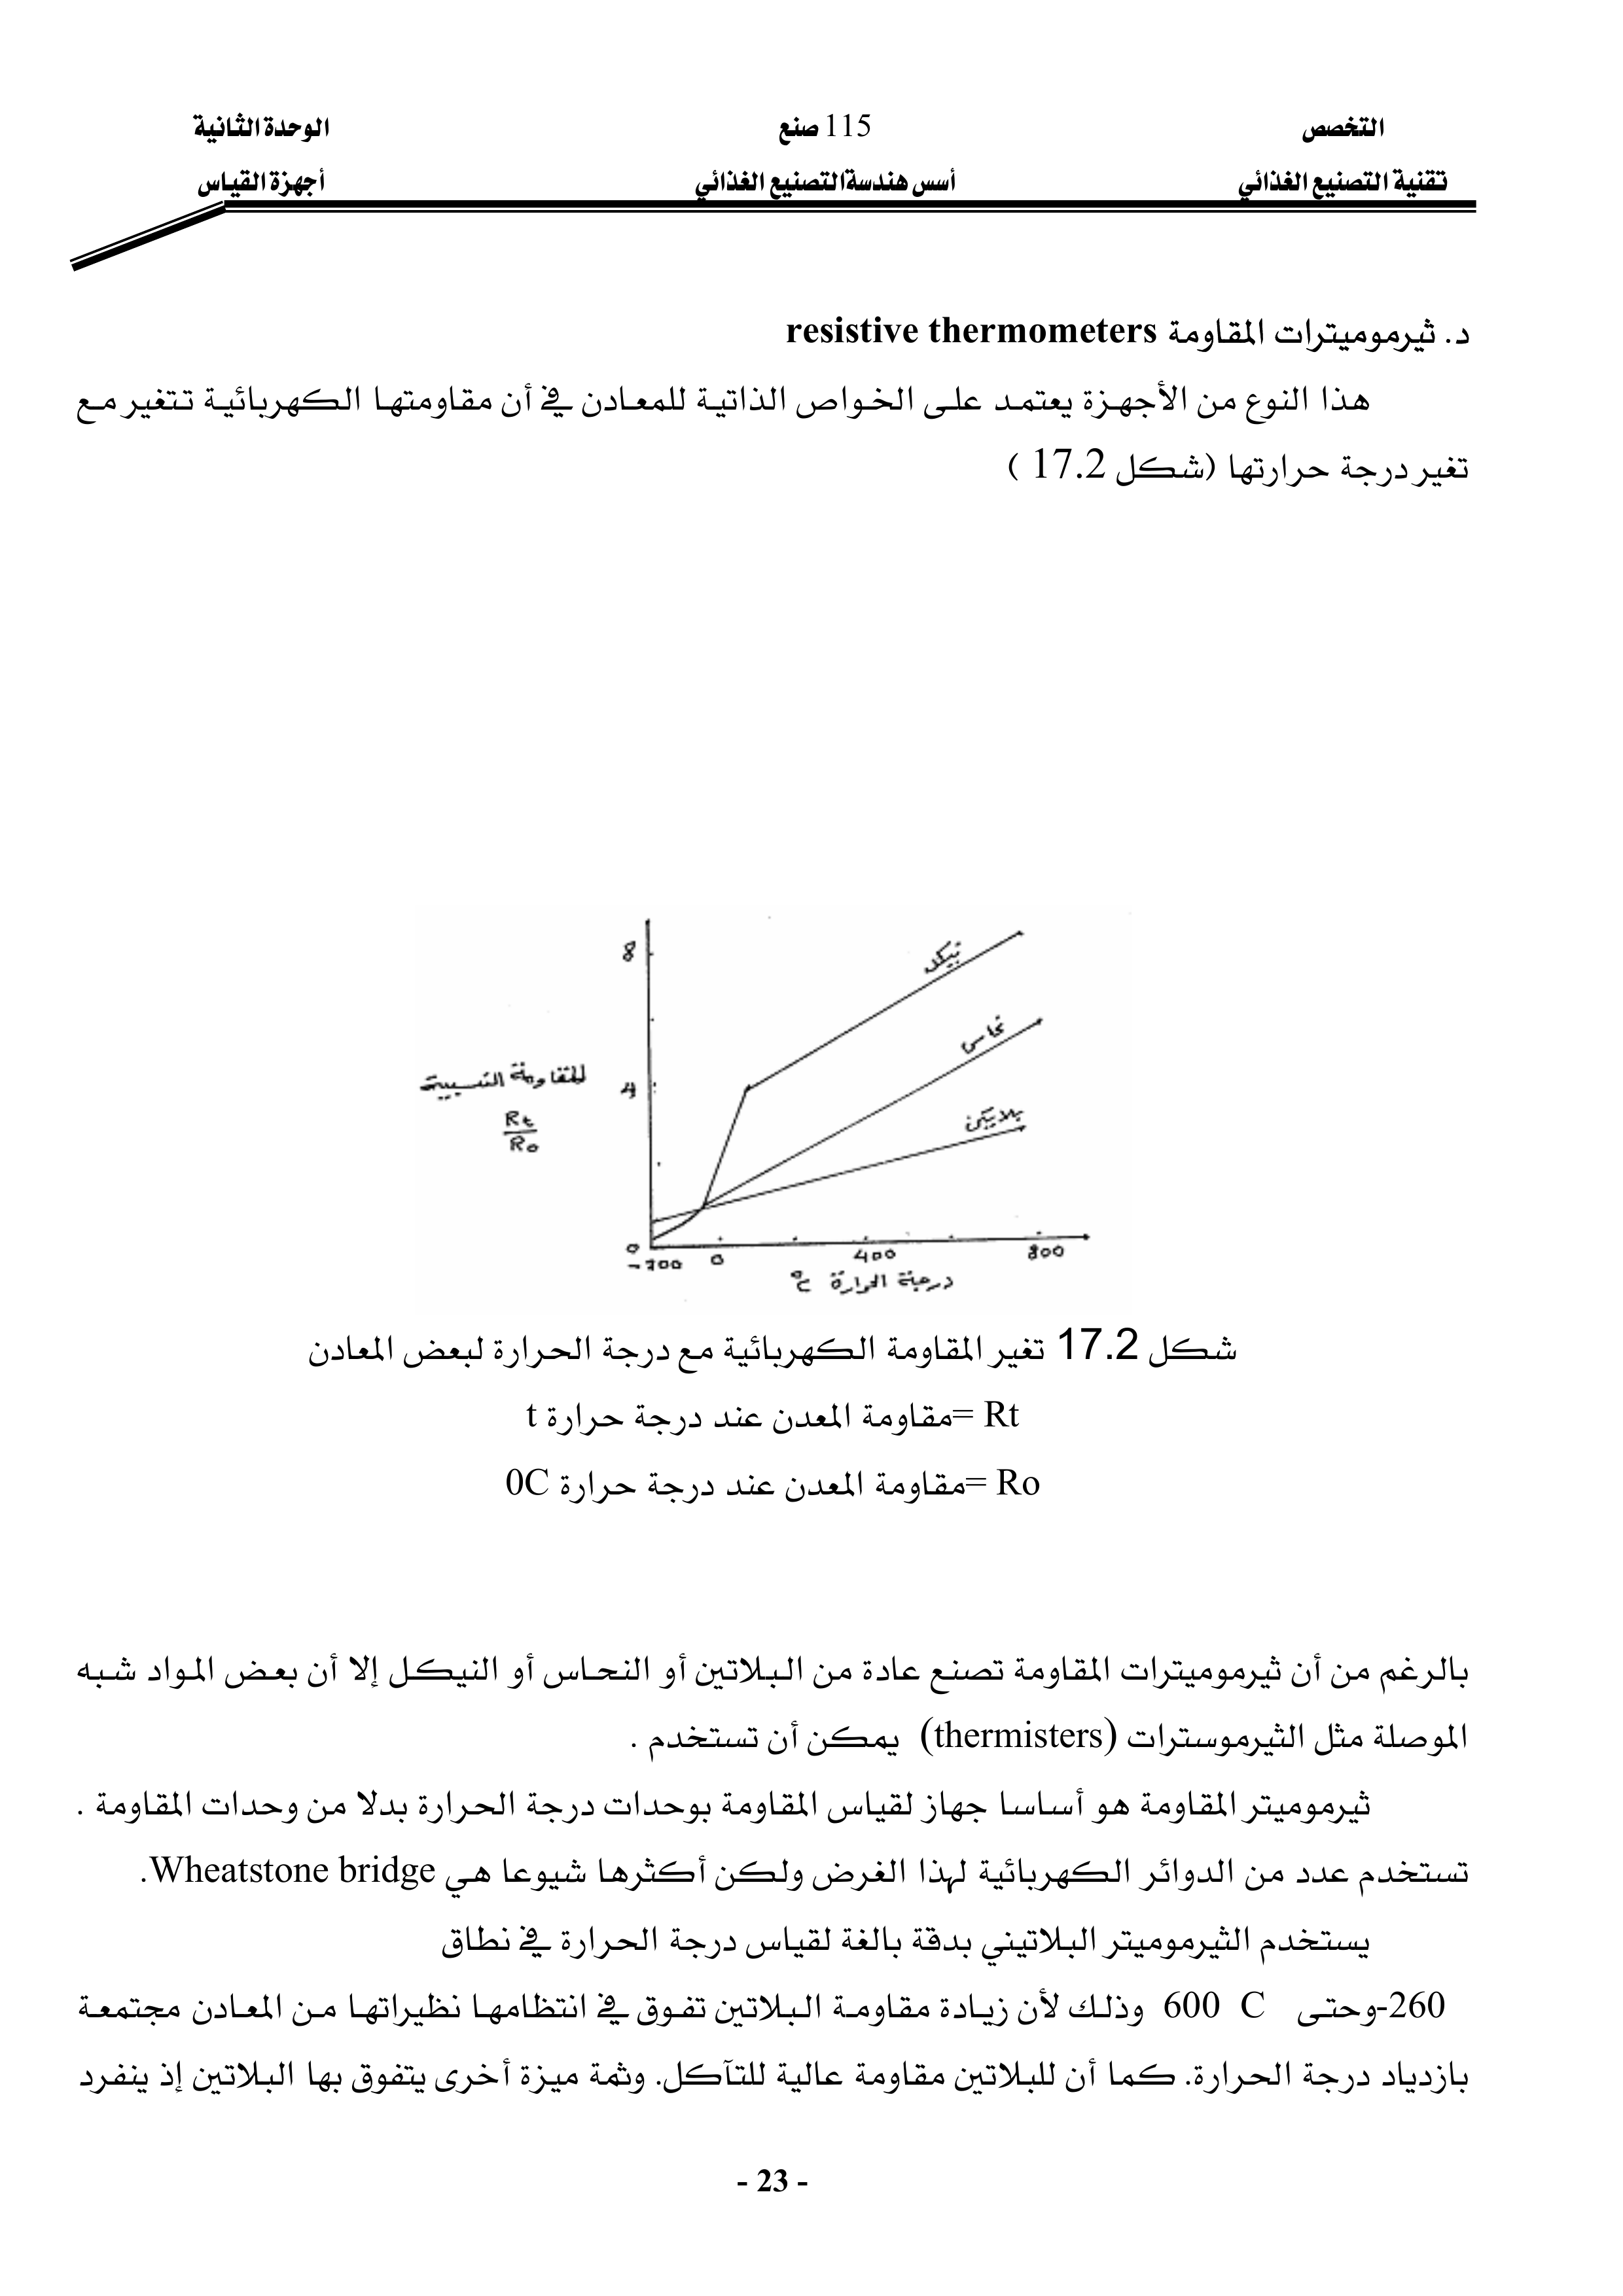 التخصص 115 صنع الوحدة الثانية
تقنية التصنيع الغذائي أسس هندسة التصنيع الغذائي أجهزة القياس
د. ثيرموميترات المقاومة resistive thermometers
هذا النوع من الأجهزة يعتمد على الخواص الذاتية للمعادن في أن مقاومتها الكهربائية تتغير مع
تغير درجة حرارتها (شكل 17.2 )
8
نيكل
نحاس
المقاومة النسبية
4
Rt
Ro
بلاتين
0
-200 0 400 800
درجة الحرارة °C
شكل 17.2 تغير المقاومة الكهربائية مع درجة الحرارة لبعض المعادن
Rt =مقاومة المعدن عند درجة حرارة t
Ro =مقاومة المعدن عند درجة حرارة 0C
بالرغم من أن ثيرموميترات المقاومة تصنع عادة من البلاتين أو النحاس أو النيكل إلا أن بعض المواد شبه
الموصلة مثل الثيرموسترات (thermisters) يمكن أن تستخدم .
ثيرموميتر المقاومة هو أساسا جهاز لقياس المقاومة بوحدات درجة الحرارة بدلا من وحدات المقاومة .
تستخدم عدد من الدوائر الكهربائية لهذا الغرض ولكن أكثرها شيوعا هي Wheatstone bridge.
يستخدم الثيرموميتر البلاتيني بدقة بالغة لقياس درجة الحرارة في نطاق
260-وحتى 600 C وذلك لأن زيادة مقاومة البلاتين تفوق في انتظامها نظيراتها من المعادن مجتمعة
بازدياد درجة الحرارة. كما أن للبلاتين مقاومة عالية للتآكل. وثمة ميزة أخرى يتفوق بها البلاتين إذ ينفرد
- 23 -